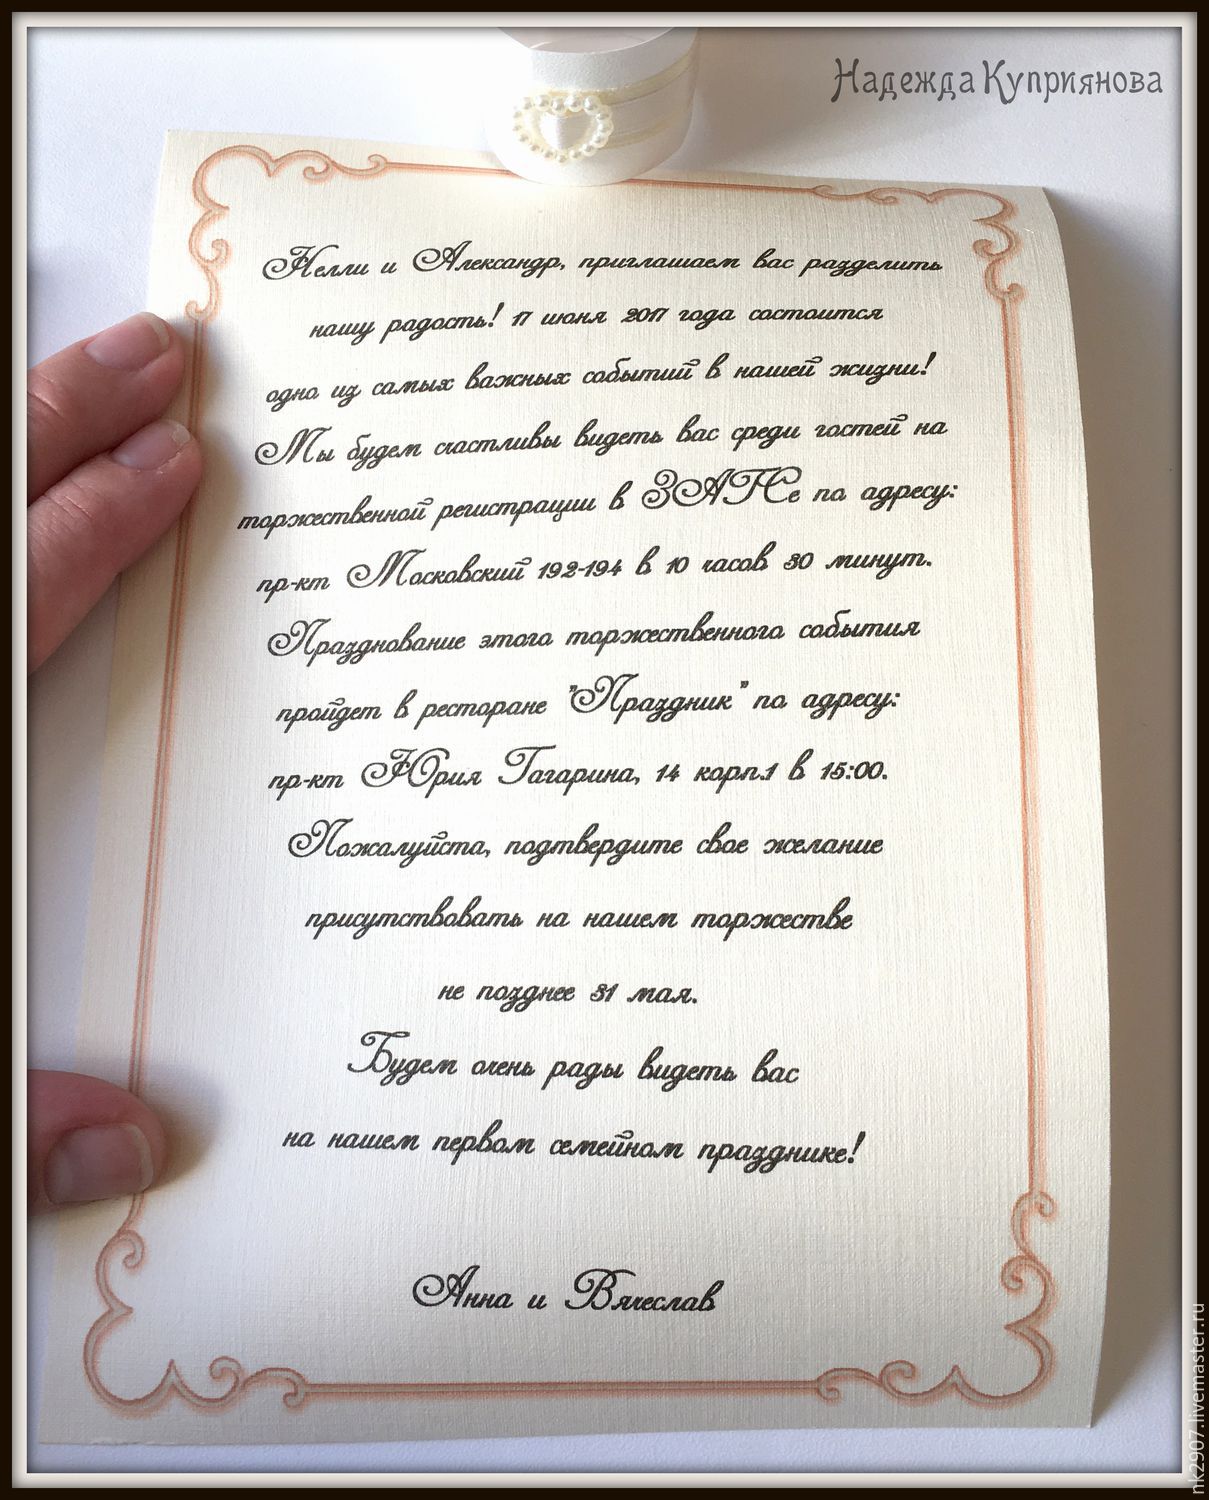 Надежда Куприянова
Нелли и Александр, приглашаем вас разделить
нашу радость! 17 июня 2017 года состоится
одно из самых важных событий в нашей жизни!
Мы будем счастливы видеть вас среди гостей на
торжественной регистрации в ЗАГСе по адресу:
пр-кт Московский 192-194 в 10 часов 30 минут.
Празднование этого торжественного события
пройдет в ресторане "Праздник" по адресу:
пр-кт Юрия Гагарина, 14 корп.1 в 15:00.
Пожалуйста, подтвердите свое желание
присутствовать на нашем торжестве
не позднее 31 мая.
Будем очень рады видеть вас
на нашем первом семейном празднике!
Анна и Вячеслав
nk2907.livemaster.ru